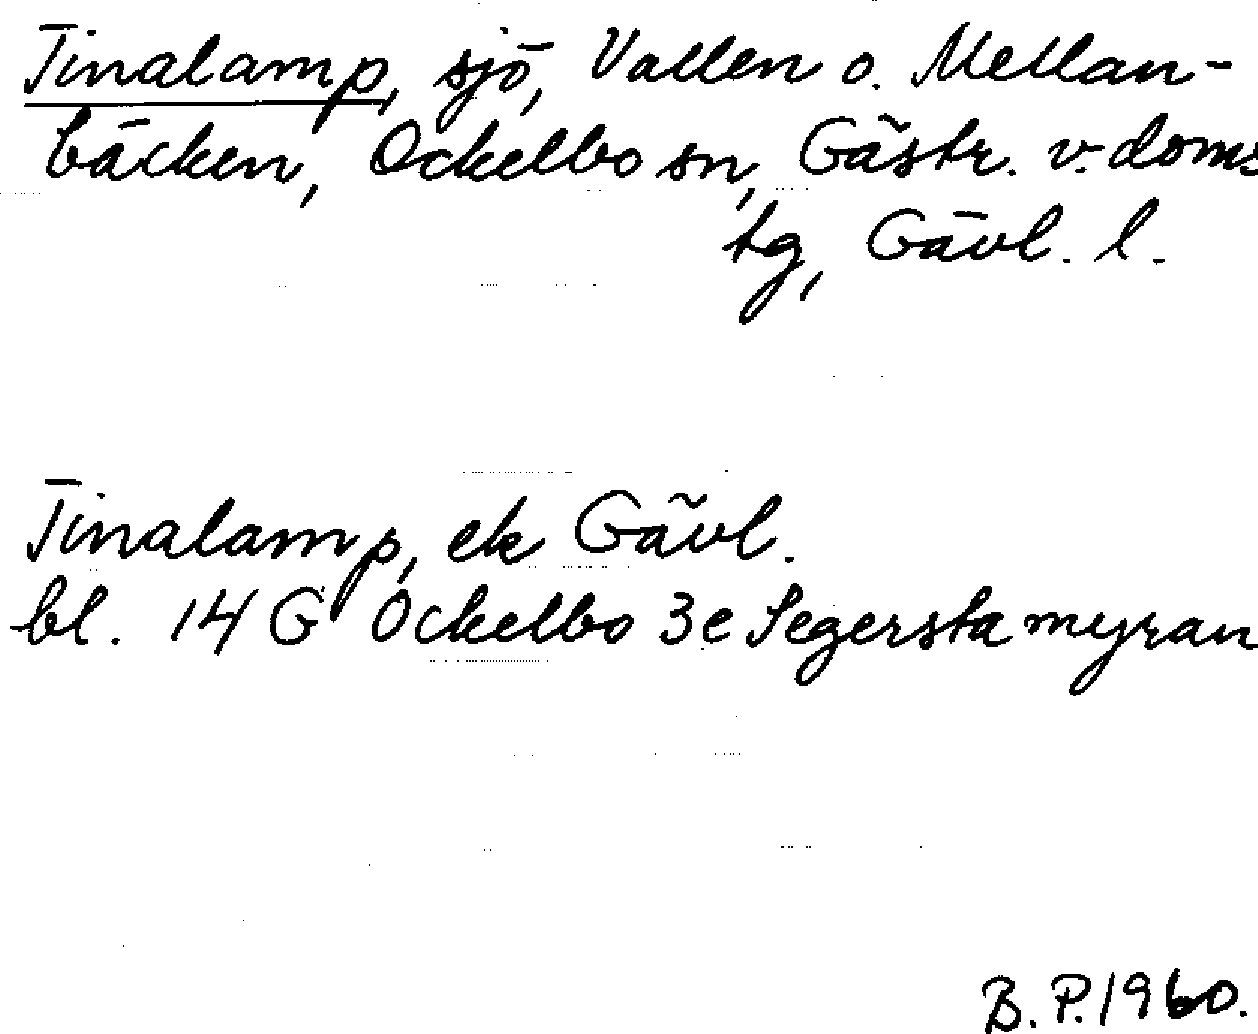 Tinalamp, sjö, Vallen o. Mellan-
bäcken, Ockelbo sn, Gästr. v. doms
tg, Gävl. l.
Tinalamp, ek Gävl.
bl. 14 G Ockelbo 3e Segerstamyran
B.P. 1960.